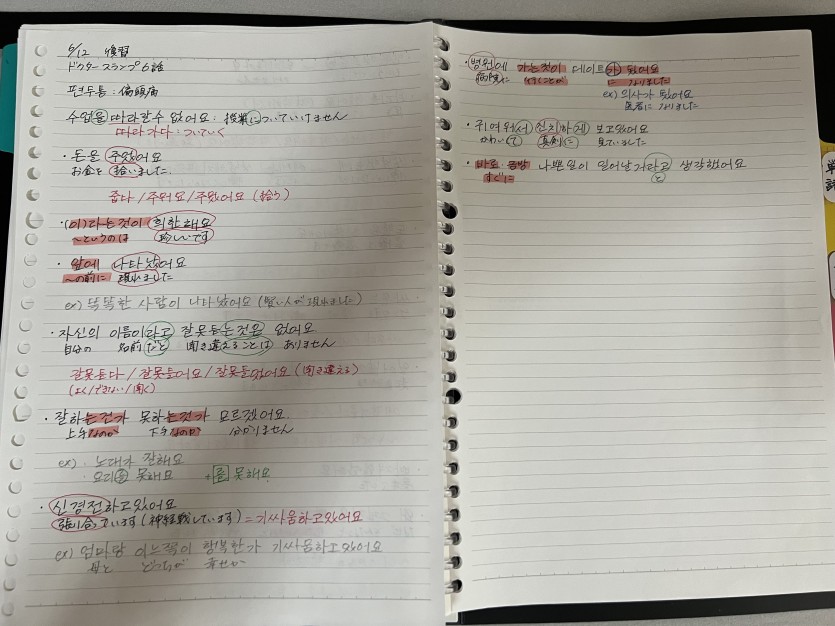 5/12 復習
ドクタースランプ6話
편두통：偏頭痛
수업을 따라갈수 없어요：授業についていけません
따라가다：ついていく
・돈을 주웠어요
お金を 拾いました
줍다/주워요/주웠어요 (拾う)
・(이)라는것이 희한해요
〜というのは 珍しいです
・앞에 나타났어요
〜の前に 現れました
ex) 똑똑한 사람이 나타났어요 (賢い人が現れました)
・자신의 이름이라고 잘못듣는것은 없어요
自分の 名前だと 聞き違えることは ありません
잘못듣다/잘못들어요/잘못들었어요 (聞き違える)
(よく/できない/聞く)
・잘하는건가 못하는것가 모르겠어요
上手なのか 下手なのか 分かりません
ex) 노래가 잘해요
요리을 못해요 를 못해요
・신경전하고있어요
張り合っています (神経戦しています) = 기싸움하고있어요
ex) 엄마랑 어느쪽이 행복한가 기싸움하고있어요
母と どっちが 幸せか
・병원에 가는것이 데이트가 됬어요
病院に 行くことが に なりました
ex) 의사가 됬어요
医者に なりました
・귀여워서 진지하게 보고있어요
かわいくて 真剣に 見ていました
・바로・금방 나쁜일이 일어날거라고 생각했어요
すぐに と